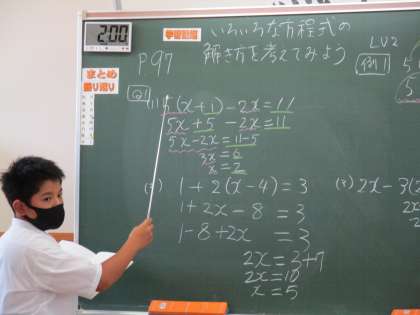 2:00
学習課題
いろいろな方程式の
解き方を考えてみよう
P97
まとめ
振り返り
Q1
(1) 5(x+1)-2x=11
5x+5-2x=11
5x-2x=11-5
3x=6
x=2
1+2(x-4)=3
1+2x-8=3
1-8+2x=3
2x=3+7
2x=10
x=5
2x-3(
2x
LV2
例1